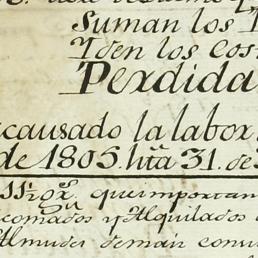 Suman los
Yden los Cos
Perdida
causado la labor
de 1805. hta 31. de
que importan
y Alquilados
Almudes deman